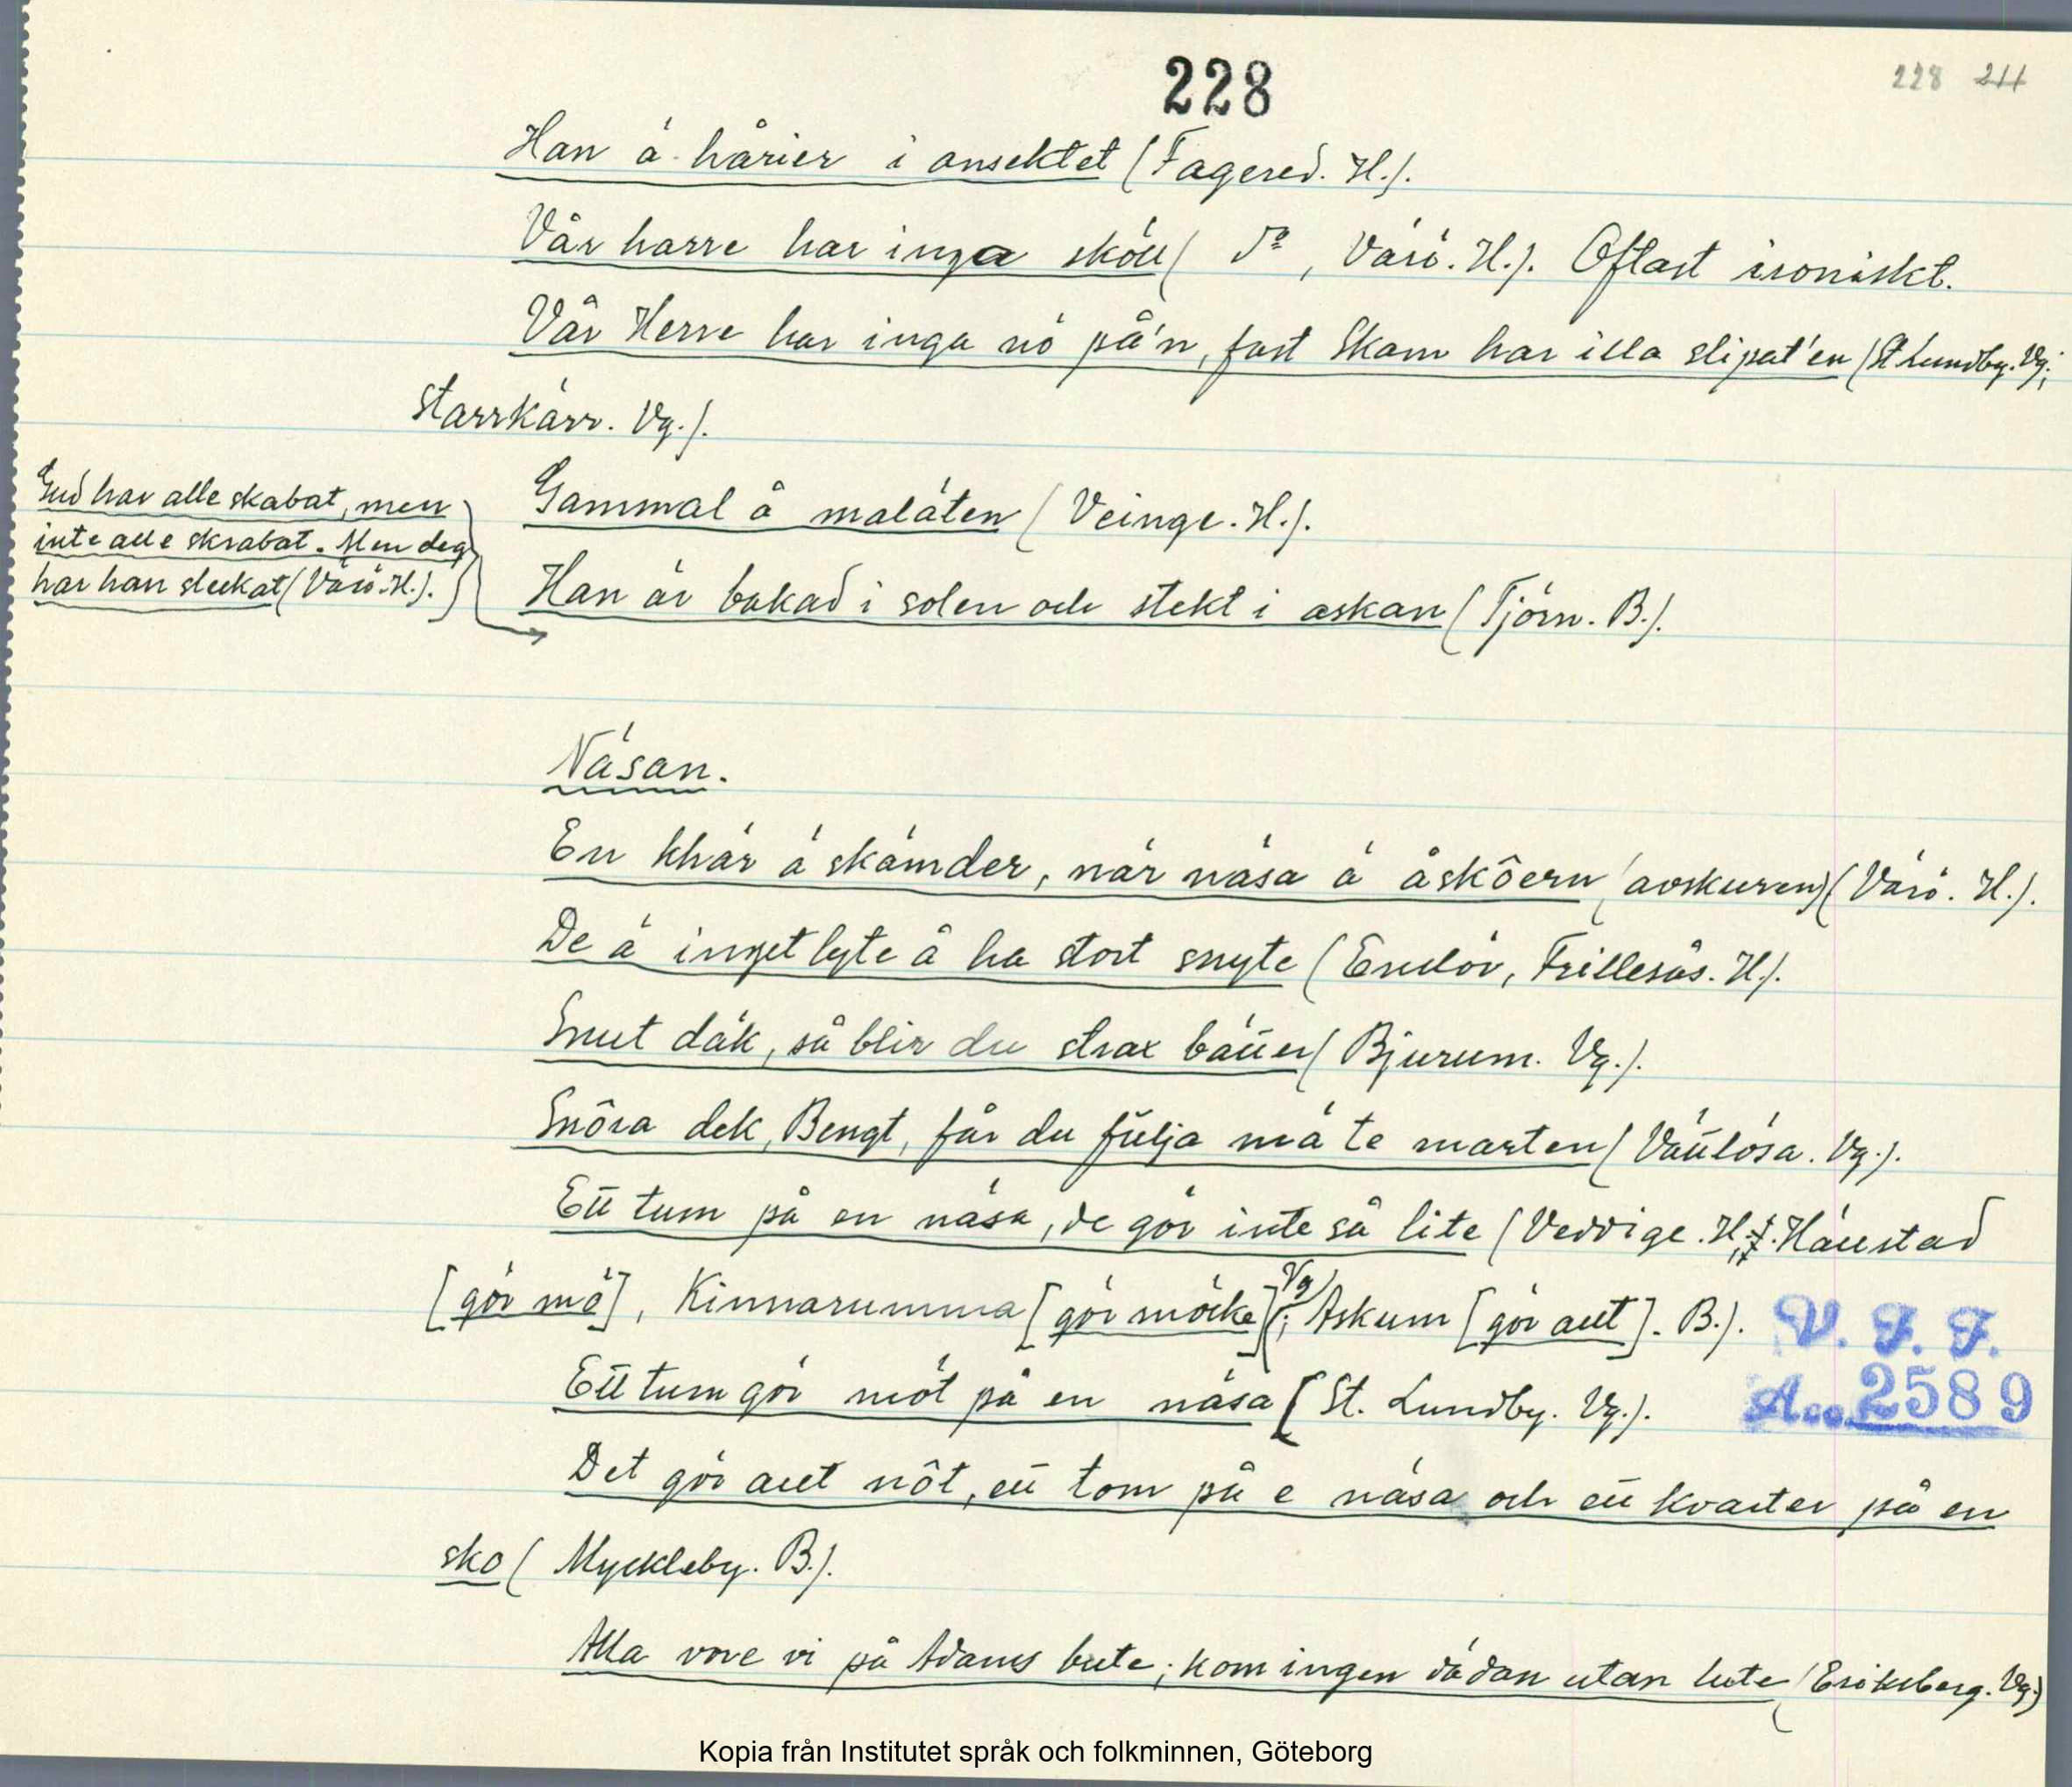 228
228 211
Han ä hårier i ansektet (Fagered. H.).
Vår harre har inga sköll (do, Värö. H.). Oftast ironiskt.
Vår Herre har inga nö på'n, fast Skam har illa slipat'en (St Lundby. Vg;
Starrkärr. Vg.).
Gud har alle skabat, men
inte alle skrabat. Men deg
har han sleekat (Värö. H.).
Gammal å maläten (Veinge. H.).
Han är bakad i solen och stekt i askan (Tjörn. B.).
Näsan.
En khär ä skämder, när näsa ä åskôern (avskuren) (Värö. H.).
De ä inget lyte å ha stort snyte (Enslöv, Frillesås. H.).
Snut däk, så blir du strax bätter (Bjurum. Vg.).
Snôra dek, Bengt, får du fülja mä te marten (Vättlösa. Vg.).
Ett tum på en näsa, de gör inte så lite (Veddige. H.; Hällstad
[gör mö], Kinnarumma [gör möcke] Vg.; Askum [gör allt]. B.).
V. F. F.
Ett tum gör möt på en näsa (St. Lundby. Vg.).
Acc. 2589
Det gör allt nôt, ett tom på e näsa och ett kvarter på en
sko (Myckleby. B.).
Alla vore vi på Adams bute; kom ingen dädan utan lute (Eriksberg. Vg.)
Kopia från Institutet språk och folkminnen, Göteborg